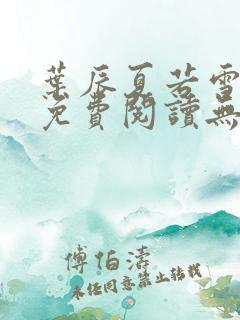 葉辰夏若雪
免費閱讀無
傅伯濤
未任同意禁止轉載